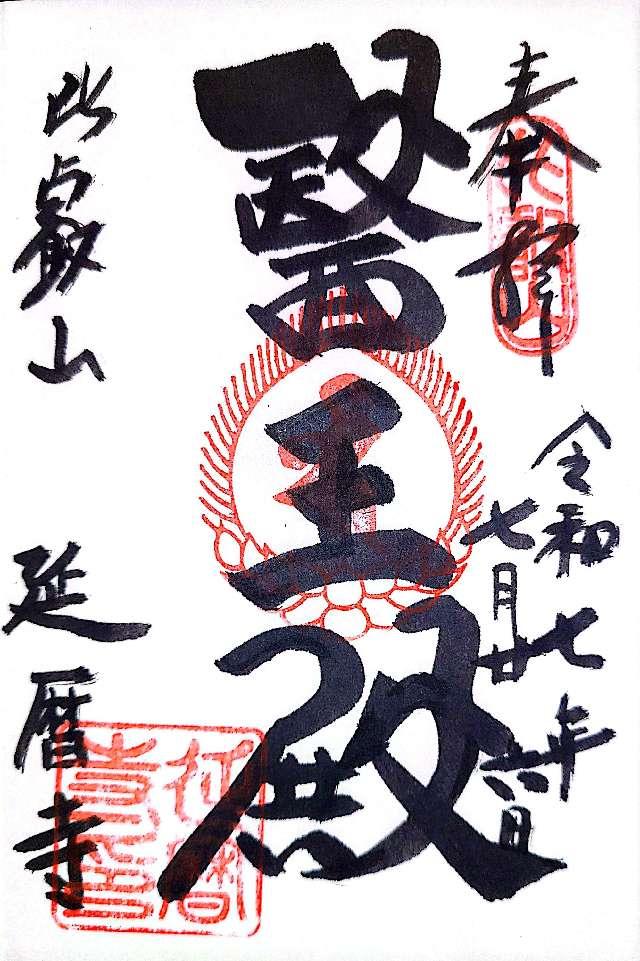 奉拝
令和七年
七月廿六日
醫王殿
比叡山
延暦寺